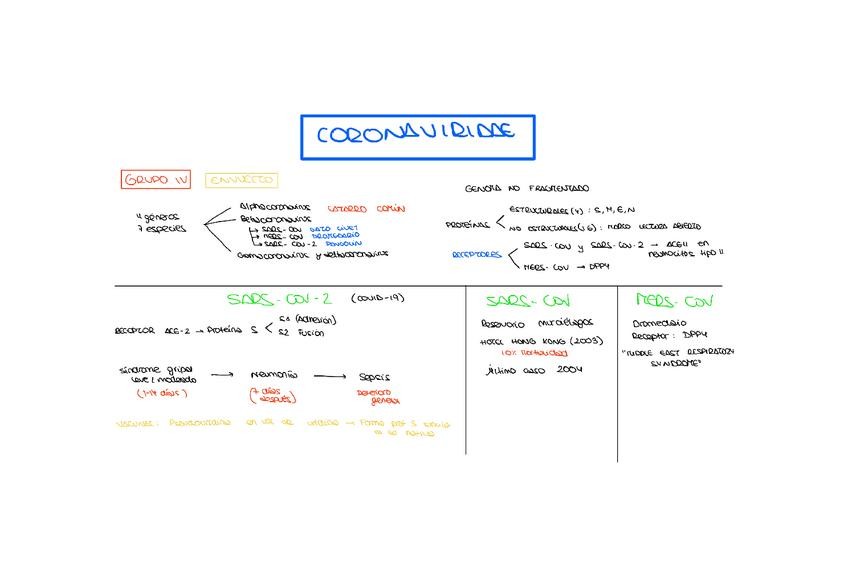 CORONAVIRIDAE
GRUPO IV
ENVUELTO
4 géneros
7 especies
Alphacoronavirus CATARRO COMÚN
Betacoronavirus
↳ SARS-COV GATO CIVET
↳ MERS-COV DROMEDARIO
↳ SARS-COV-2 PANGOLÍN
Gamacoronavirus y deltacoronavirus
GENOMA NO FRAGMENTADO
PROTEÍNAS
ESTRUCTURALES (4) : S, M, E, N
NO ESTRUCTURALES (16) : MARCO LECTURA ABIERTO
RECEPTORES
SARS-COV y SARS-COV-2 → ACEII en
neumocitos tipo II
MERS-COV → DPP4
SARS-COV-2 (COVID-19)
RECEPTOR ACE-2 → Proteína S
S1 (Adhesión)
S2 Fusión
Síndrome gripal
leve/moderado
(1-14 días)
→ Neumonía
(7 días
después)
→ Sepsis
Deterioro
general
VACUNAS: en vez de → Forma prot S
SARS-COV
Reservorio murciélagos
HOTEL HONG KONG (2003)
10% mortalidad
Último caso 2004
MERS-COV
Dromedario
Receptor: DPP4
"MIDDLE EAST RESPIRATORY
SYNDROME"